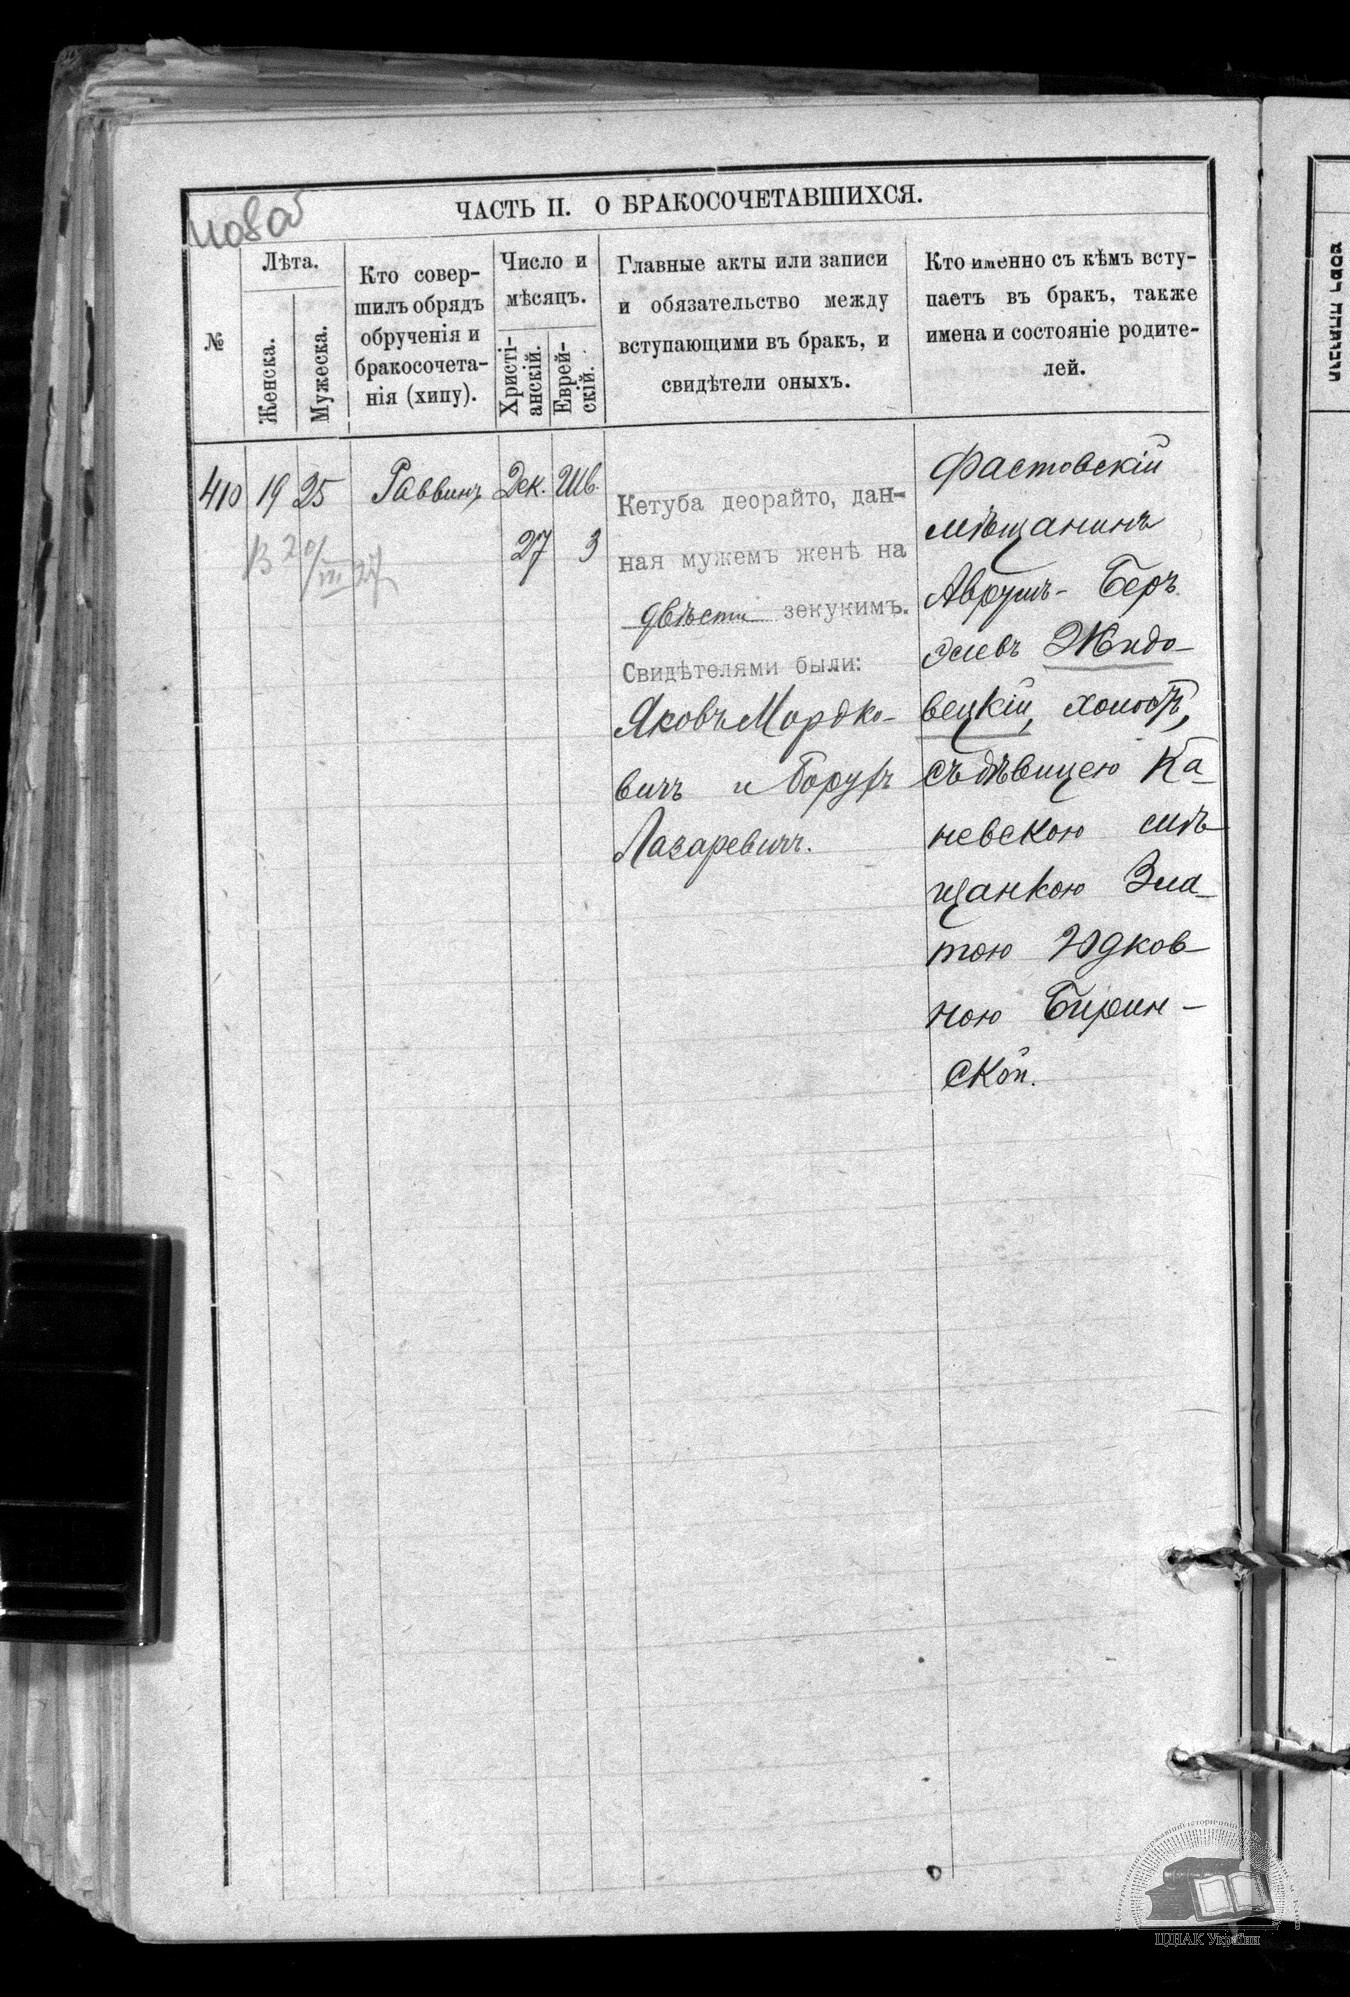 ЧАСТЬ II. О БРАКОСОЧЕТАВШИХСЯ.
№
Лѣта.
Женска.
Мужеска.
Кто совер-
шилъ обрядъ
обрученія и
бракосочета-
нія (хипу).
Число и
мѣсяцъ.
Христі-
анскій.
Еврей-
скій.
Главные акты или записи
и обязательство между
вступающими въ бракъ, и
свидѣтели оныхъ.
Кто именно съ кѣмъ всту-
паетъ въ бракъ, также
имена и состояніе родите-
лей.
410
19
25
Раввинъ
Дек.
27
Шв.
3
Кетуба деорайто, дан-
ная мужемъ женѣ на
двѣсти зекукимъ.
Свидѣтелями были:
Яковъ Мордко-
вичъ и Борухъ
Лазаревичъ.
Фастовскій
мѣщанинъ
Аврумъ-Беръ
Жидо-
вецкій, холостъ,
съ дѣвицею Ка-
невскою мѣ-
щанкою Зла-
тою Юдков-
ною Бирин-
ской.
ЦДІАК України